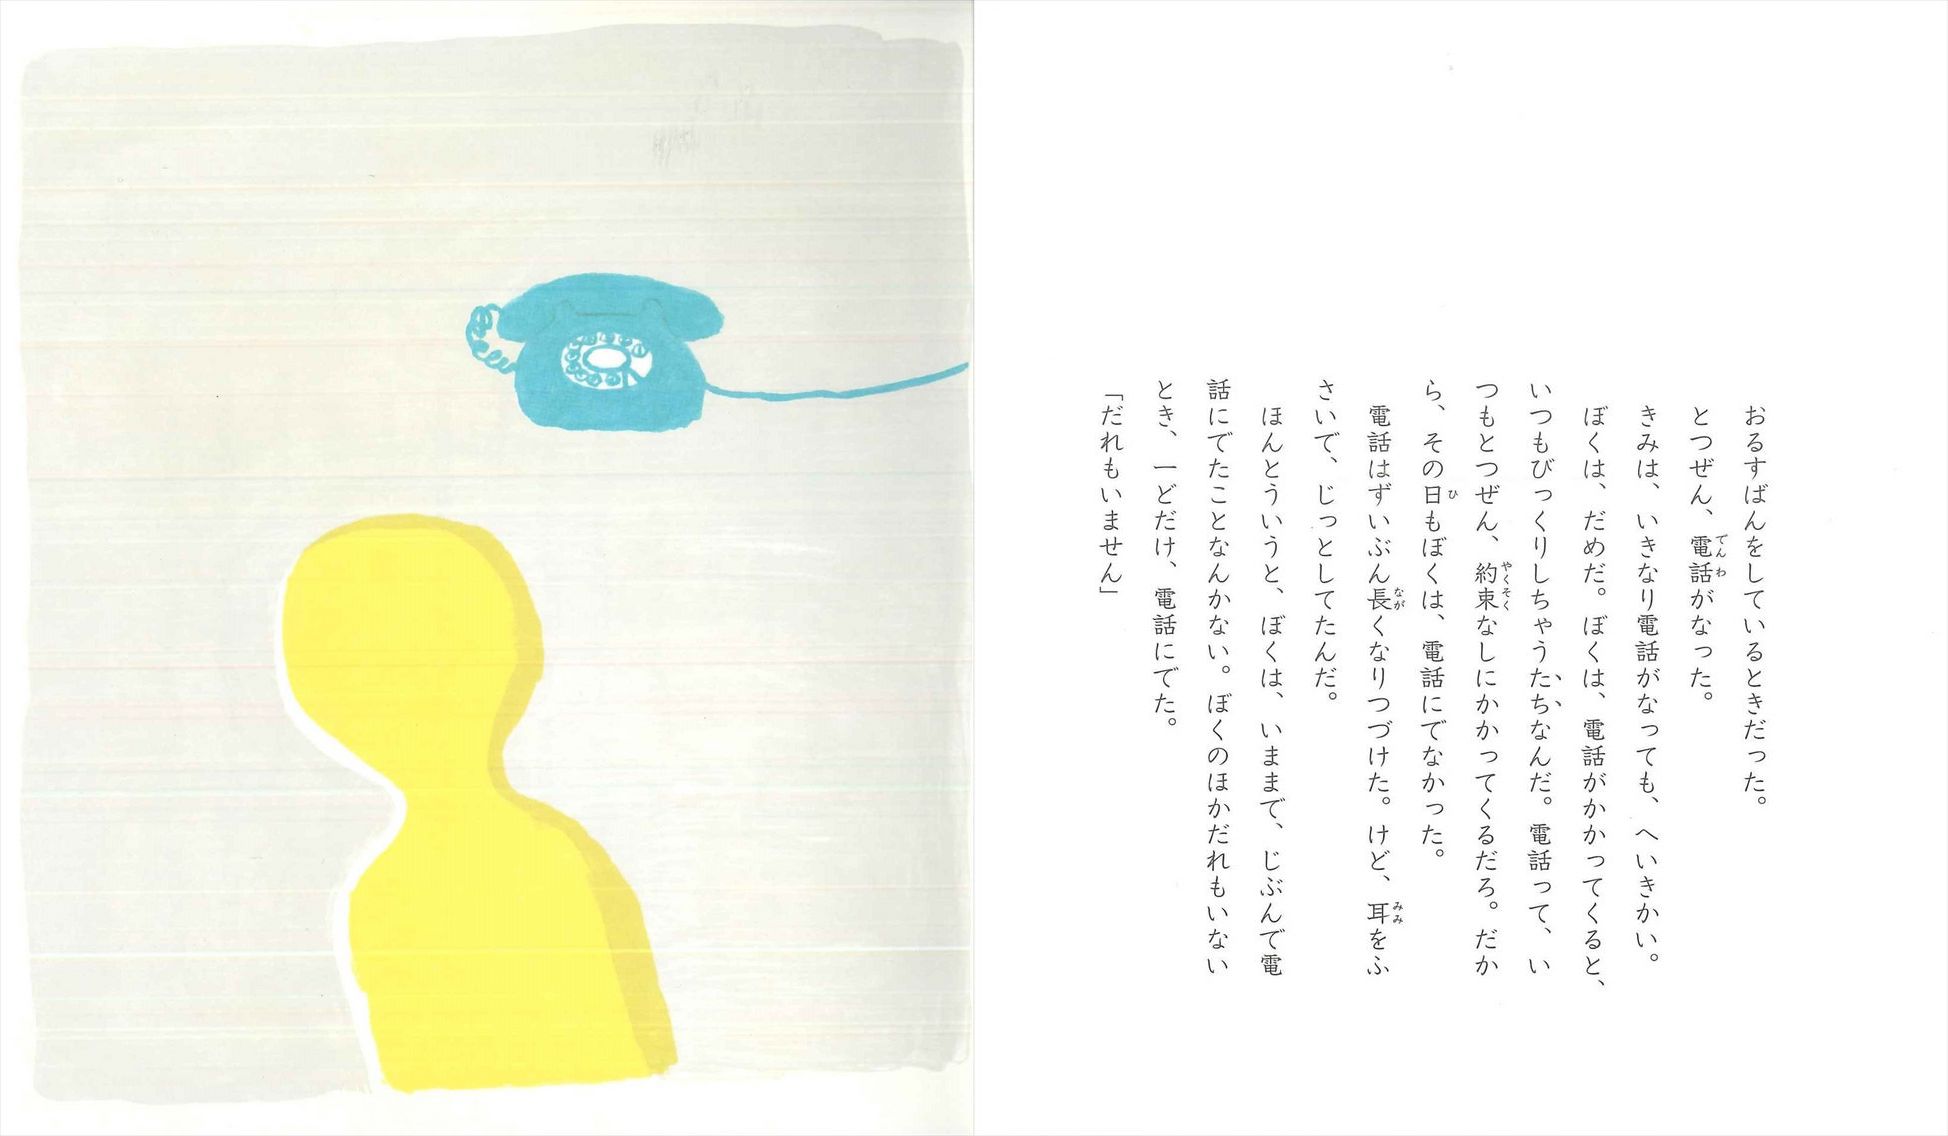 おるすばんをしているときだった。
とつぜん、電話がなった。
きみは、いきなり電話がなっても、へいきかい。
ぼくは、だめだ。ぼくは、電話がかかってくると、
いつもびっくりしちゃうたちなんだ。電話って、い
つもとつぜん、約束なしにかかってくるだろ。だか
ら、その日もぼくは、電話にでなかった。
電話はずいぶん長くなりつづけた。けど、耳をふ
さいで、じっとしてたんだ。
ほんとういうと、ぼくは、いままで、じぶんで電
話にでたことなんかない。ぼくのほかだれもいない
とき、一どだけ、電話にでた。
「だれもいません」